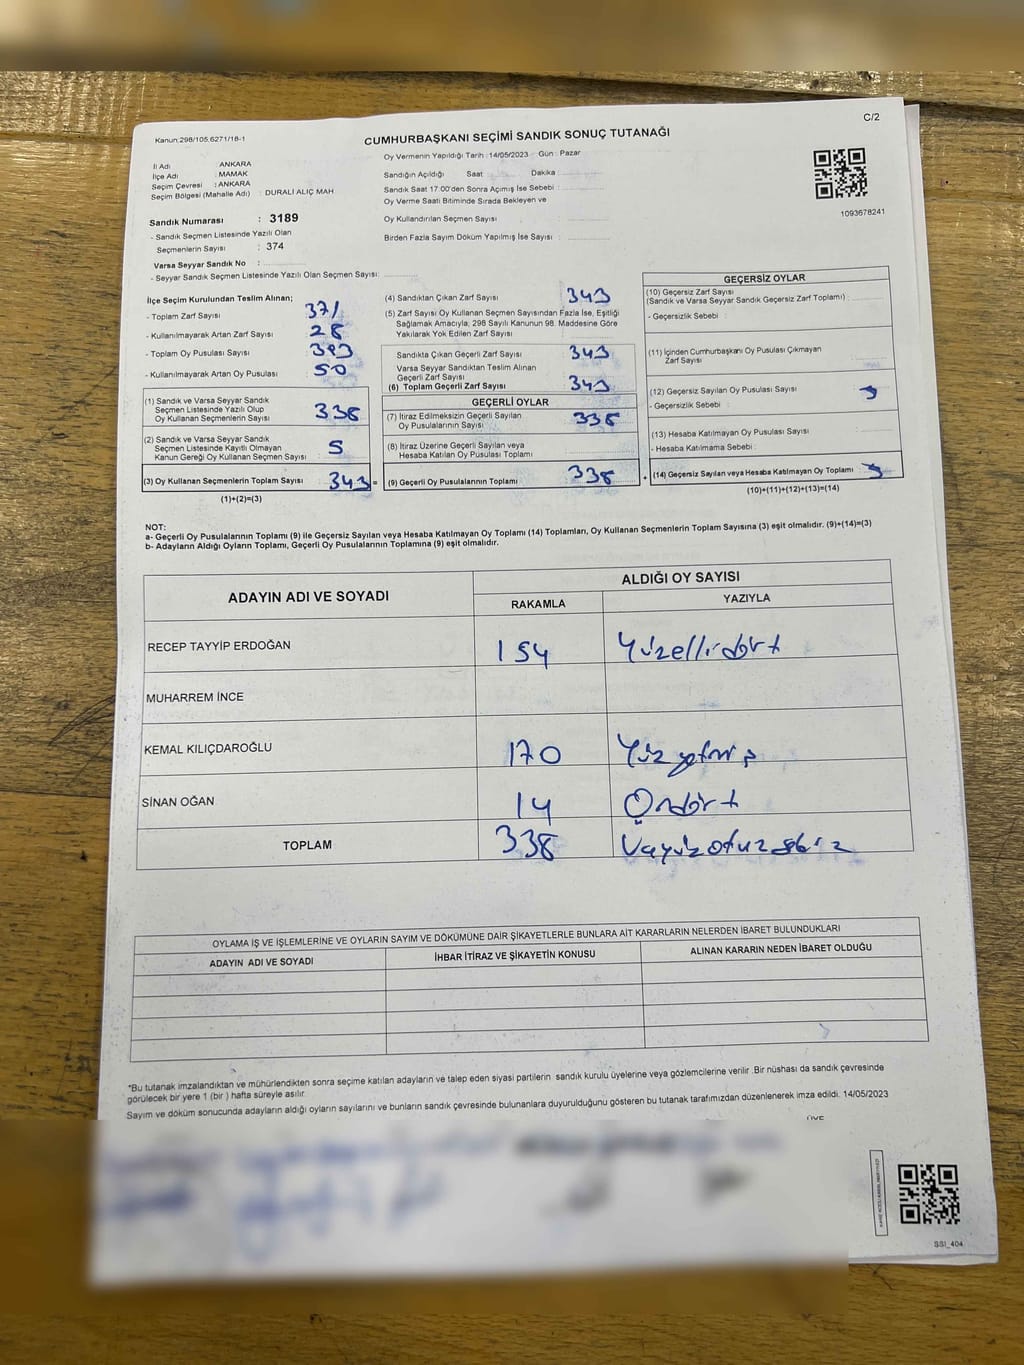 C/2
Kanun:298/105,6271/18-1
CUMHURBAŞKANI SEÇİMİ SANDIK SONUÇ TUTANAĞI
İl Adı : ANKARA
İlçe Adı : MAMAK
Seçim Çevresi : ANKARA
Seçim Bölgesi (Mahalle Adı) : DURALİ ALIÇ MAH
Sandık Numarası : 3189
- Sandık Seçmen Listesinde Yazılı Olan
Seçmenlerin Sayısı : 374
Varsa Seyyar Sandık No :
- Seyyar Sandık Seçmen Listesinde Yazılı Olan Seçmen Sayısı:
Oy Vermenin Yapıldığı Tarih :14/05/2023 Gün : Pazar
Sandığın Açıldığı Saat Dakika
Sandık Saat 17:00'den Sonra Açımış İse Sebebi :
Oy Verme Saati Bitiminde Sırada Bekleyen ve
Oy Kullandırılan Seçmen Sayısı :
Birden Fazla Sayım Döküm Yapılmış İse Sayısı :
1093678241
İlçe Seçim Kurulundan Teslim Alınan;
- Toplam Zarf Sayısı 371
- Kullanılmayarak Artan Zarf Sayısı 28
- Toplam Oy Pusulası Sayısı 393
- Kullanılmayarak Artan Oy Pusulası 50
(1) Sandık ve Varsa Seyyar Sandık
Seçmen Listesinde Yazılı Olup
Oy Kullanan Seçmenlerin Sayısı 338
(2) Sandık ve Varsa Seyyar Sandık
Seçmen Listesinde Kayıtlı Olmayan
Kanun Gereği Oy Kullanan Seçmen Sayısı 5
(3) Oy Kullanan Seçmenlerin Toplam Sayısı 343 =
(1)+(2)=(3)
(4) Sandıktan Çıkan Zarf Sayısı 343
(5) Zarf Sayısı Oy Kullanan Seçmen Sayısından Fazla İse, Eşitliği
Sağlamak Amacıyla, 298 Sayılı Kanunun 98. Maddesine Göre
Yakılarak Yok Edilen Zarf Sayısı
Sandıkta Çıkan Geçerli Zarf Sayısı 343
Varsa Seyyar Sandıktan Teslim Alınan
Geçerli Zarf Sayısı
(6) Toplam Geçerli Zarf Sayısı 343
GEÇERLİ OYLAR
(7) İtiraz Edilmeksizin Geçerli Sayılan
Oy Pusulalarının Sayısı: 338
(8) İtiraz Üzerine Geçerli Sayılan veya
Hesaba Katılan Oy Pusulası Toplamı
(9) Geçerli Oy Pusulalarının Toplamı 338 +
GEÇERSİZ OYLAR
(10) Geçersiz Zarf Sayısı
(Sandık ve Varsa Seyyar Sandık Geçersiz Zarf Toplamı) :
- Geçersizlik Sebebi :
(11) İçinden Cumhurbaşkanı Oy Pusulası Çıkmayan
Zarf Sayısı
(12) Geçersiz Sayılan Oy Pusulası Sayısı 5
- Geçersizlik Sebebi :
(13) Hesaba Katılmayan Oy Pusulası Sayısı
- Hesaba Katılmama Sebebi :
(14) Geçersiz Sayılan veya Hesaba Katılmayan Oy Toplamı 5
(10)+(11)+(12)+(13)=(14)
NOT:
a- Geçerli Oy Pusulalarının Toplamı (9) ile Geçersiz Sayılan veya Hesaba Katılmayan Oy Toplamı (14) Toplamları, Oy Kullanan Seçmenlerin Toplam Sayısına (3) eşit olmalıdır. (9)+(14)=(3)
b- Adayların Aldığı Oyların Toplamı, Geçerli Oy Pusulalarının Toplamına (9) eşit olmalıdır.
ADAYIN ADI VE SOYADI
ALDIĞI OY SAYISI
RAKAMLA YAZIYLA
RECEP TAYYİP ERDOĞAN 154 Yüzellidört
MUHARREM İNCE
KEMAL KILIÇDAROĞLU 170 Yüzyetmiş
SİNAN OĞAN 14 Ondört
TOPLAM 338 Üçyüzotuzsekiz
OYLAMA İŞ VE İŞLEMLERİNE VE OYLARIN SAYIM VE DÖKÜMÜNE DAİR ŞİKAYETLERLE BUNLARA AİT KARARLARIN NELERDEN İBARET BULUNDUKLARI
ADAYIN ADI VE SOYADI İHBAR İTİRAZ VE ŞİKAYETİN KONUSU ALINAN KARARIN NEDEN İBARET OLDUĞU
*Bu tutanak imzalandıktan ve mühürlendikten sonra seçime katılan adayların ve talep eden siyasi partilerin sandık kurulu üyelerine veya gözlemcilerine verilir .Bir nüshası da sandık çevresinde
görülecek bir yere 1 (bir ) hafta süreyle asılır.
Sayım ve döküm sonucunda adayların aldığı oyların sayılarını ve bunların sandık çevresinde bulunanlara duyurulduğunu gösteren bu tutanak tarafımızdan düzenlenerek imza edildi. 14/05/2023
ÜYE
SSI_404